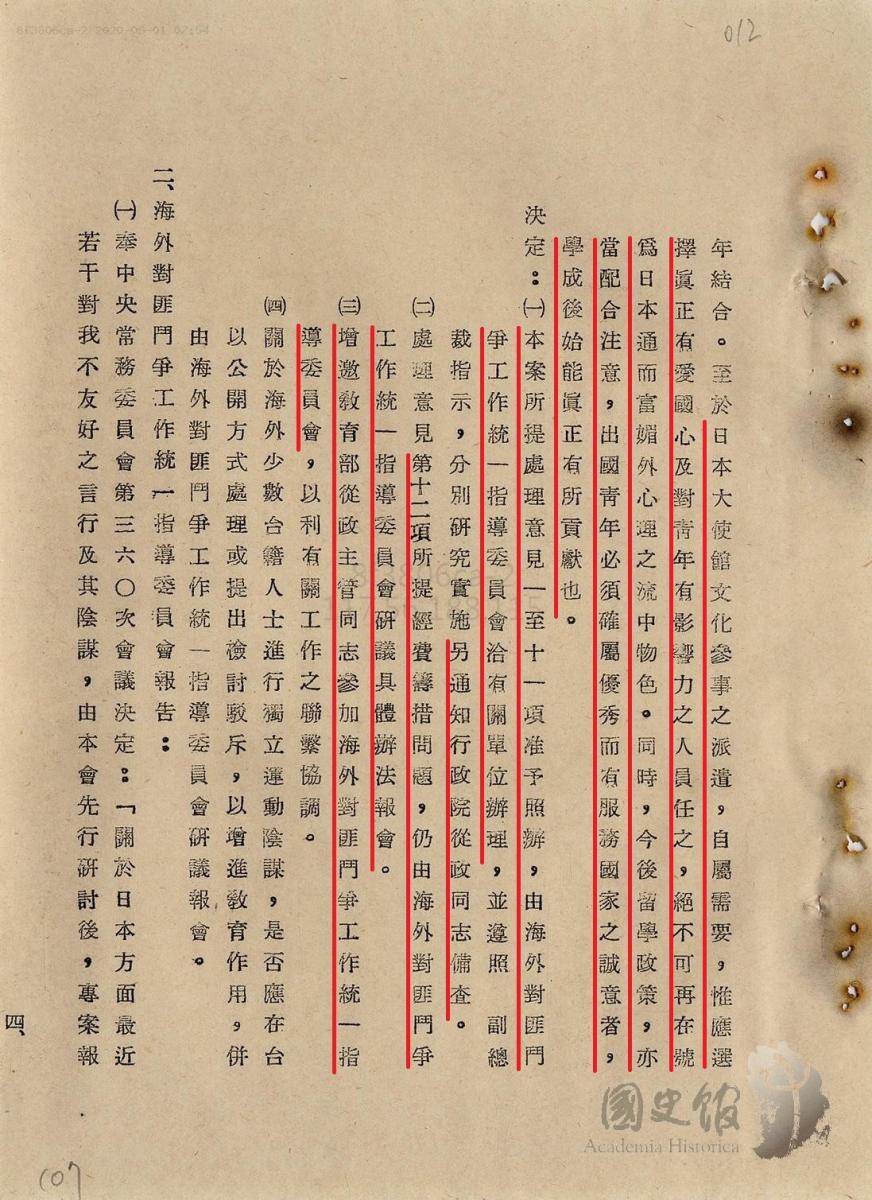 012
年結合。至於日本大使館文化參事之派遣，自屬需要，惟應選
擇眞正有愛國心及對靑年有影響力之人員任之，絕不可再在號
爲日本通而富媚外心理之流中物色。同時，今後留學政策，亦
當配合注意，出國靑年必須確屬優秀而有服務國家之誠意者，
學成後始能眞正有所貢獻也。
決定：㈠本案所提處理意見一至十一項准予照辦，由海外對匪鬥
爭工作統一指導委員會洽有關單位辦理，並遵照　副總
裁指示，分別硏究實施另通知行政院從政同志備查。
㈡處理意見第十二項所提經費籌措問題，仍由海外對匪鬥爭
工作統一指導委員會硏議具體辦法報會。
㈢增邀敎育部從政主管同志參加海外對匪鬥爭工作統一指
導委員會，以利有關工作之聯繫協調。
㈣關於海外少數台籍人士進行獨立運動陰謀，是否應在台
以公開方式處理或提出檢討駁斥，以增進敎育作用，併
由海外對匪鬥爭工作統一指導委員會硏議報會。
二、海外對匪鬥爭工作統一指導委員會報告：
㈠奉中央常務委員會第三六〇次會議決定：「關於日本方面最近
若干對我不友好之言行及其陰謀，由本會先行硏討後，專案報
四、
107
國史館
Academia Historica